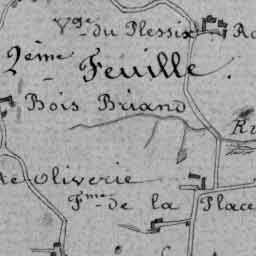 Vge du Plessix
2ème Feuille.
Bois Briand
Oliverie
Fme de la Place